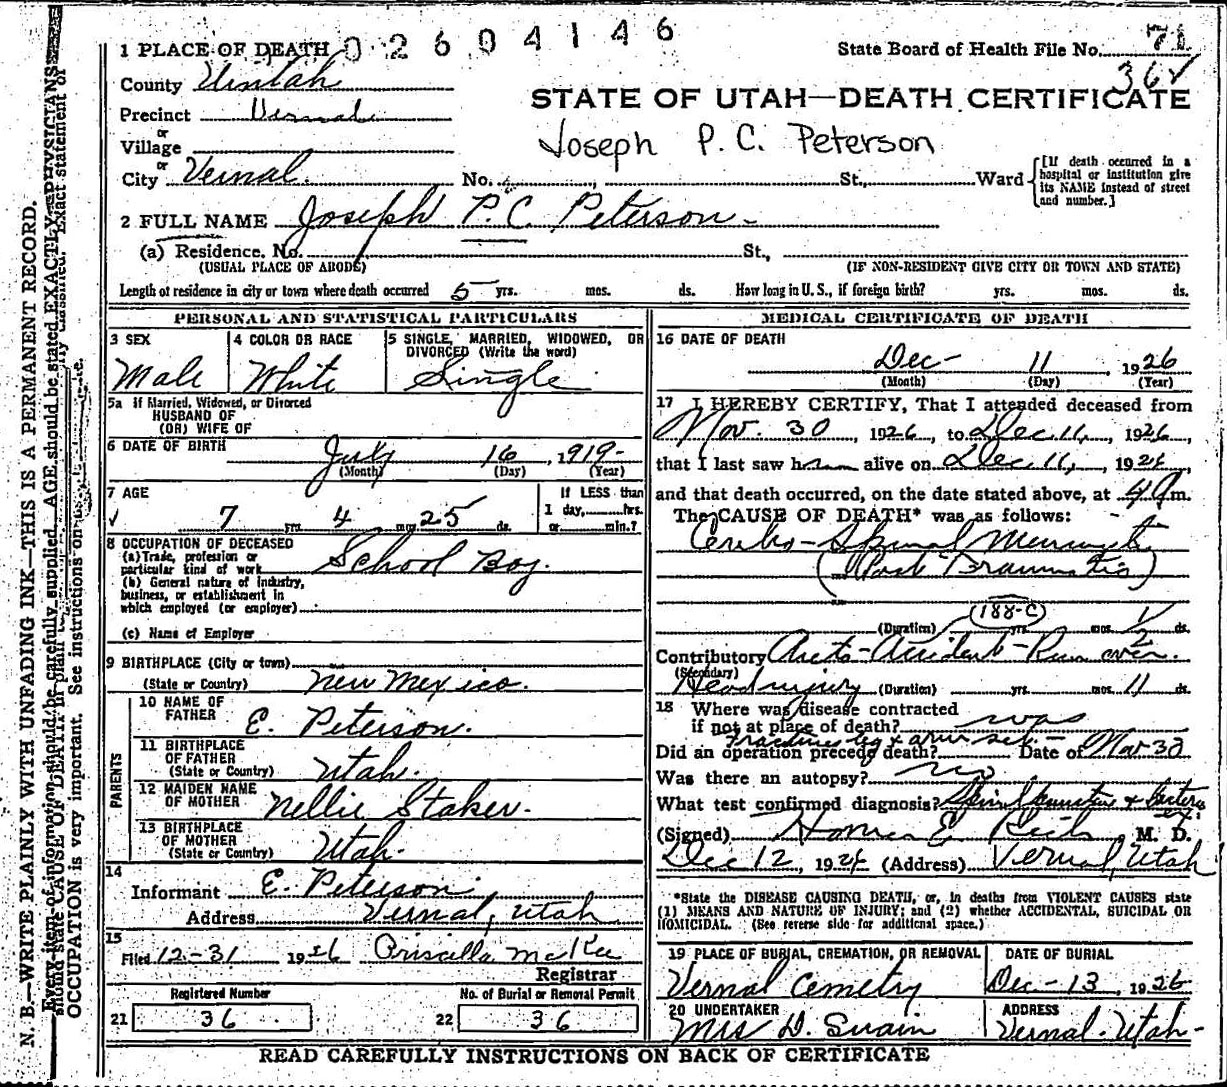 02604146
1 PLACE OF DEATH
State Board of Health File No. 71
364
County Uintah
STATE OF UTAH—DEATH CERTIFICATE
Precinct Vernal
or
Village
Joseph P. C. Peterson
or
City Vernal. No. St., Ward
[If death occurred in a hospital or institution give its NAME instead of street and number.]
2 FULL NAME Joseph P.C. Peterson
(a) Residence. No. St.,
(USUAL PLACE OF ABODE) (IF NON-RESIDENT GIVE CITY OR TOWN AND STATE)
Length of residence in city or town where death occurred 5 yrs. mos. ds. How long in U. S., if foreign birth? yrs. mos. ds.
PERSONAL AND STATISTICAL PARTICULARS
3 SEX Male
4 COLOR OR RACE White
5 SINGLE, MARRIED, WIDOWED, OR DIVORCED (Write the word) Single
5a If Married, Widowed, or Divorced
HUSBAND OF
(OR) WIFE OF
6 DATE OF BIRTH July 16, 1919
(Month) (Day) (Year)
7 AGE 7 yrs. 4 mos. 25 ds.
If LESS than
1 day, hrs.
or min.?
8 OCCUPATION OF DECEASED
(a) Trade, profession or
particular kind of work School Boy.
(b) General nature of industry,
business, or establishment in
which employed (or employer)
(c) Name of Employer
9 BIRTHPLACE (City or town)
(State or Country) New Mexico.
PARENTS
10 NAME OF
FATHER E. Peterson.
11 BIRTHPLACE
OF FATHER
(State or Country) Utah.
12 MAIDEN NAME
OF MOTHER Nellie Staker.
13 BIRTHPLACE
OF MOTHER
(State or Country) Utah.
14
Informant E. Peterson
Address Vernal, Utah
15
Filed 12-31 1926 Priscilla McKee
Registrar
Registered Number
21 36
No. of Burial or Removal Permit
22 36
MEDICAL CERTIFICATE OF DEATH
16 DATE OF DEATH
Dec- 11, 1926
(Month) (Day) (Year)
17 I HEREBY CERTIFY, That I attended deceased from
Nov. 30, 1926, to Dec. 11, 1926,
that I last saw him alive on Dec. 11, 1926,
and that death occurred, on the date stated above, at m.
The CAUSE OF DEATH* was as follows:
Cerebro-Spinal Meningitis
(Post Traumatic)
188-C
(Duration) yrs. mos. ds.
Contributory Auto-Accident-Run over.
(Secondary)
Head injury (Duration) yrs. mos. 11 ds.
18 Where was disease contracted
if not at place of death?
Did an operation precede death? Date of Nov 30
Was there an autopsy? no
What test confirmed diagnosis? Spinal puncture &
(Signed) Homer E. Rich M. D.
Dec 12, 1926 (Address) Vernal, Utah
*State the DISEASE CAUSING DEATH, or, in deaths from VIOLENT CAUSES state
(1) MEANS AND NATURE OF INJURY; and (2) whether ACCIDENTAL, SUICIDAL OR
HOMICIDAL. (See reverse side for additional space.)
19 PLACE OF BURIAL, CREMATION, OR REMOVAL
Vernal Cemetry
DATE OF BURIAL
Dec-13, 1926
20 UNDERTAKER
Mrs D. Swain
ADDRESS
Vernal-Utah-
READ CAREFULLY INSTRUCTIONS ON BACK OF CERTIFICATE
N. B.—WRITE PLAINLY WITH UNFADING INK—THIS IS A PERMANENT RECORD.
Every item of information should be carefully supplied. AGE should be stated EXACTLY. PHYSICIANS
should state CAUSE OF DEATH in plain Exact statement of
OCCUPATION is very important. See instructions on